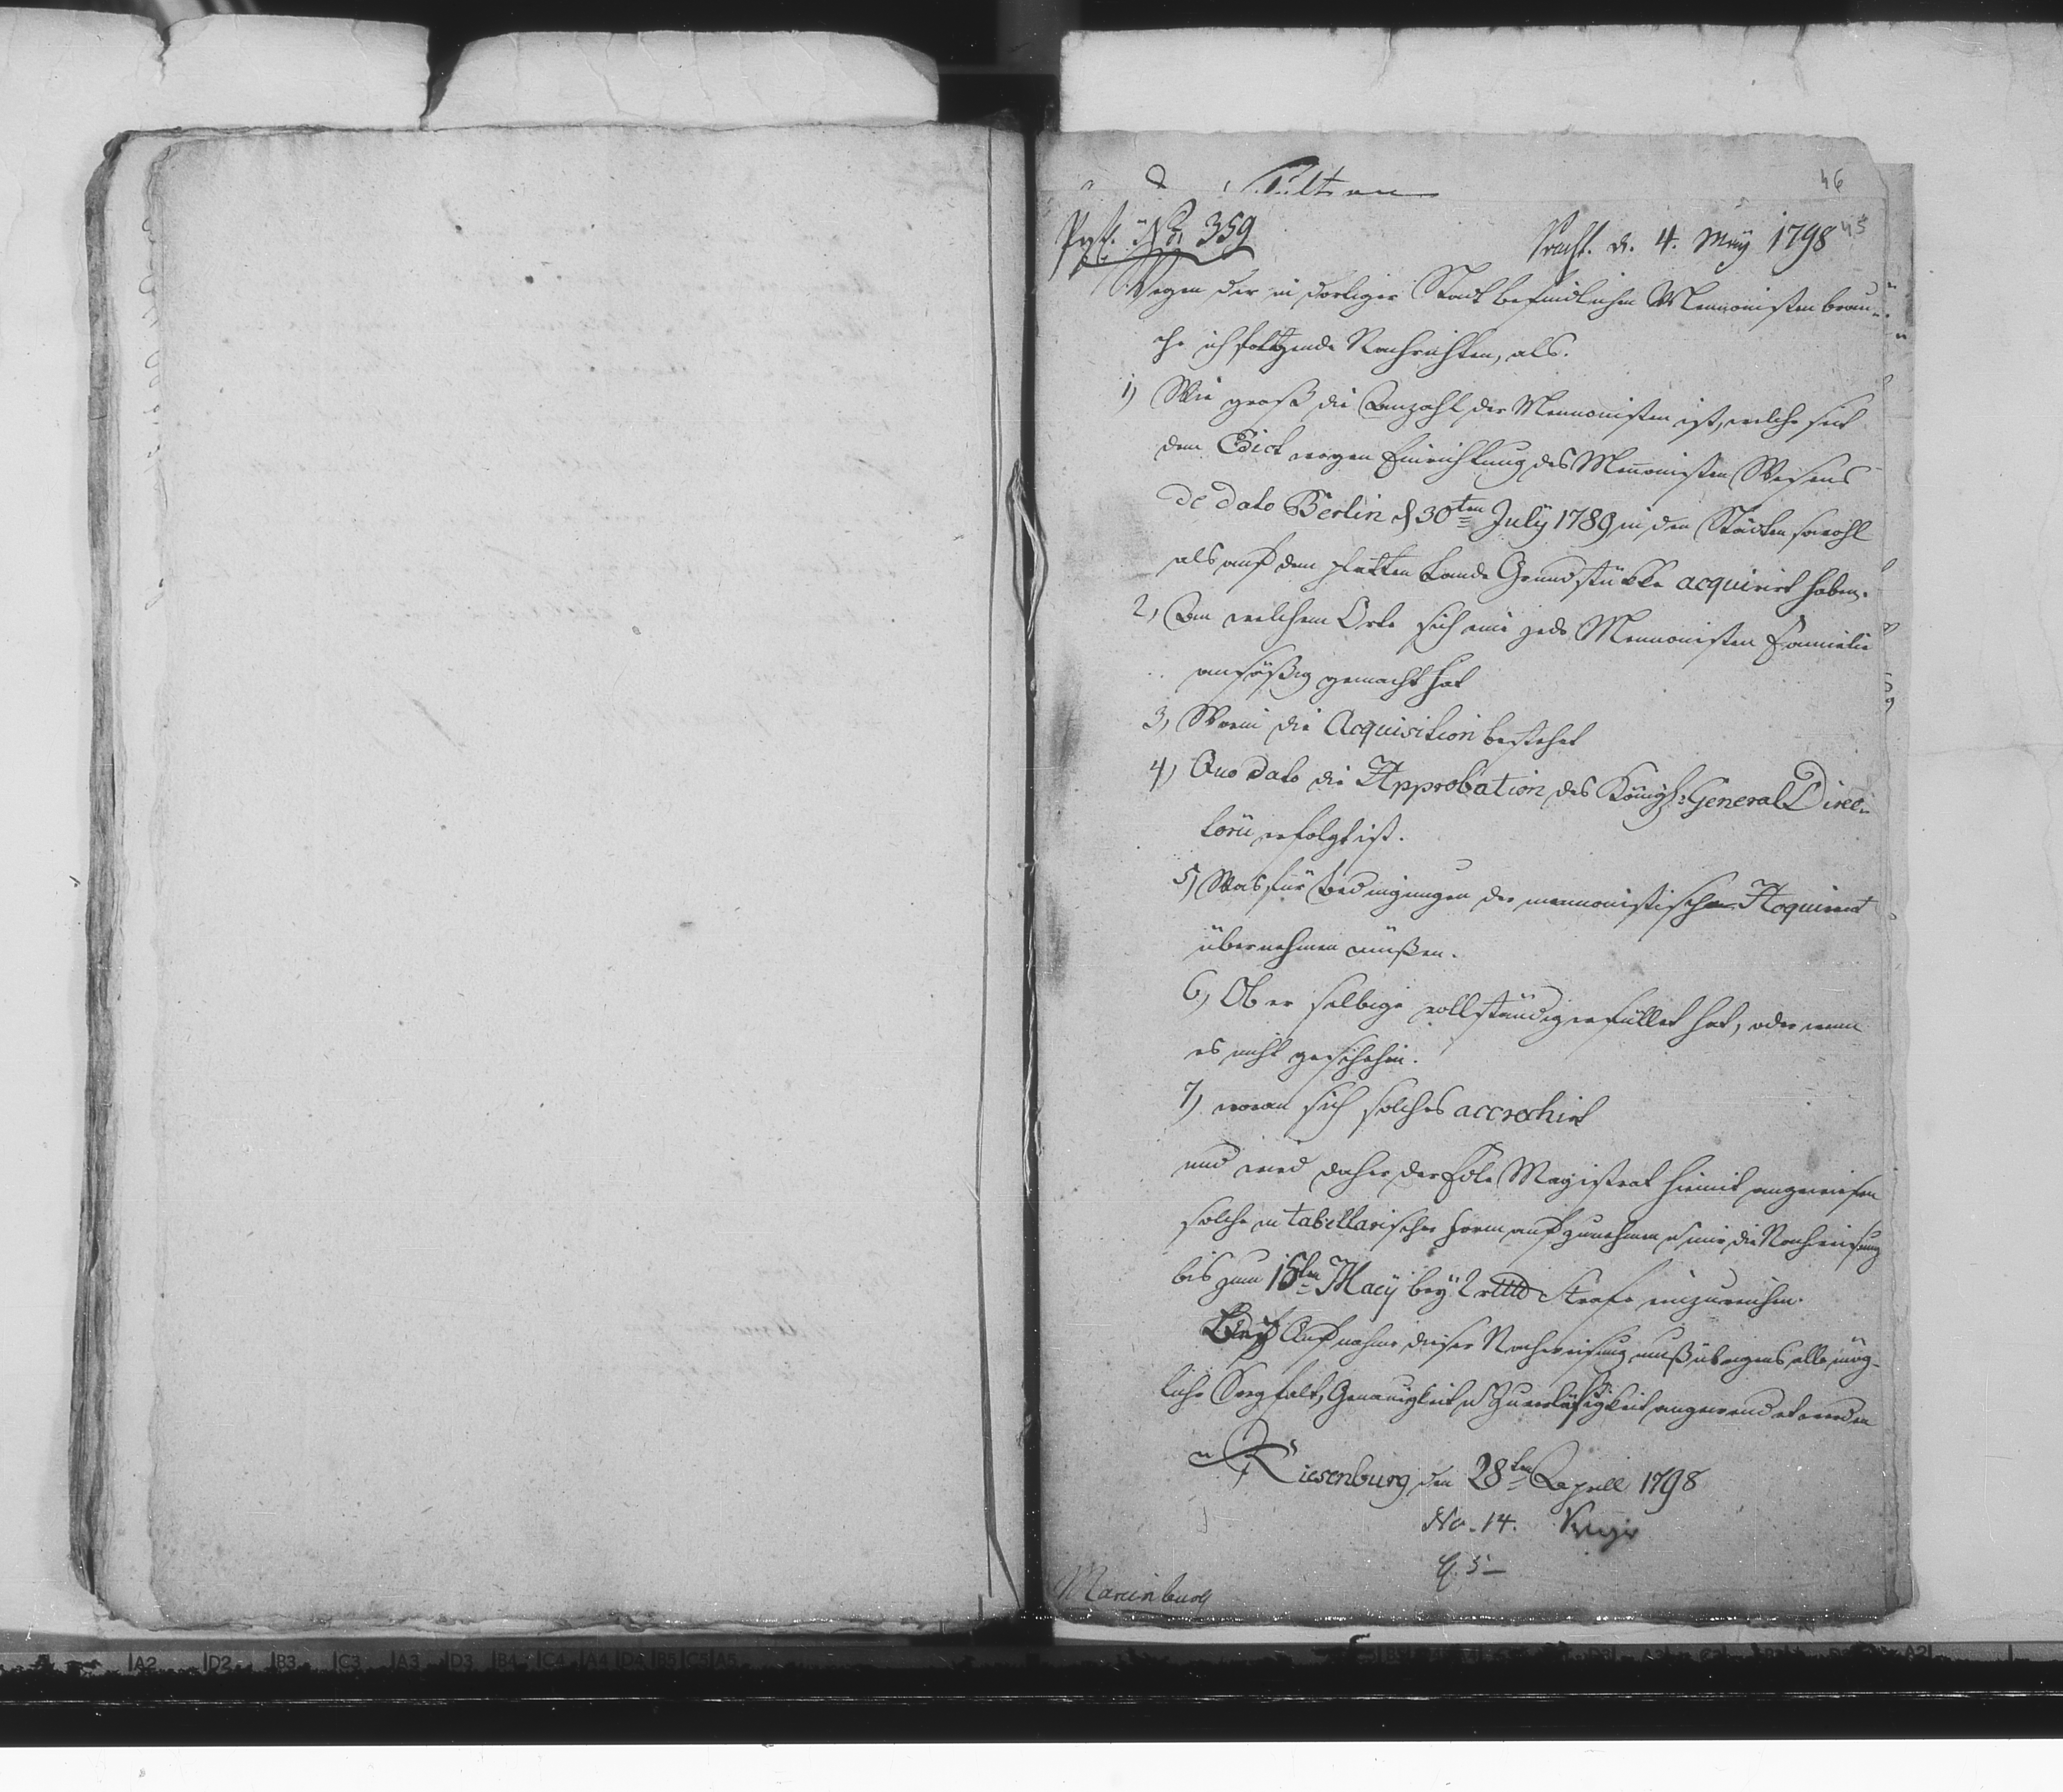 46
45
No. 359
d. 4. May 1798
Wegen der in dortiger Stadt befindlichen Mennonisten brau-
che ich folgende Nachrichten, als.
1) Wie groß die Anzahl der Mennonisten ist, welche seit
dem Edict wegen Einrichtung des Mennonisten Wesens
de dato Berlin d 30ten July 1789 in den Städten sowohl
als auf dem platten Lande Grundstükke acquirirt haben.
2, An welchem Orte sich eine jede Mennonisten Familie
ansäßig gemacht hat
3, Worin die Acquisition bestehet
4) Quo dato die Approbation des Königl: General Direc-
torii erfolgt ist.
5) Was für Bedingungen der mennonistische Acquirent
übernehmen müßen.
6, Ob er selbige vollständig erfüllet hat, oder wenn
es nicht geschehen.
7) woran sich solches accrochirt
und wird daher der Magistrat hiemit angewiesen
solche in tabellarischer Form aufzunehmen u mir die Nachweisung
bis zum 15ten May bey 2 Strafe einzureichen.
Bey Aufnahme dieser Nachweisung muß übrigens alle mög-
liche Sorgfalt, Genauigkeit u Zuverläßigkeit angewendet werden
Riesenburg den 28ten Aprill 1798
No. 14.
Marienburg